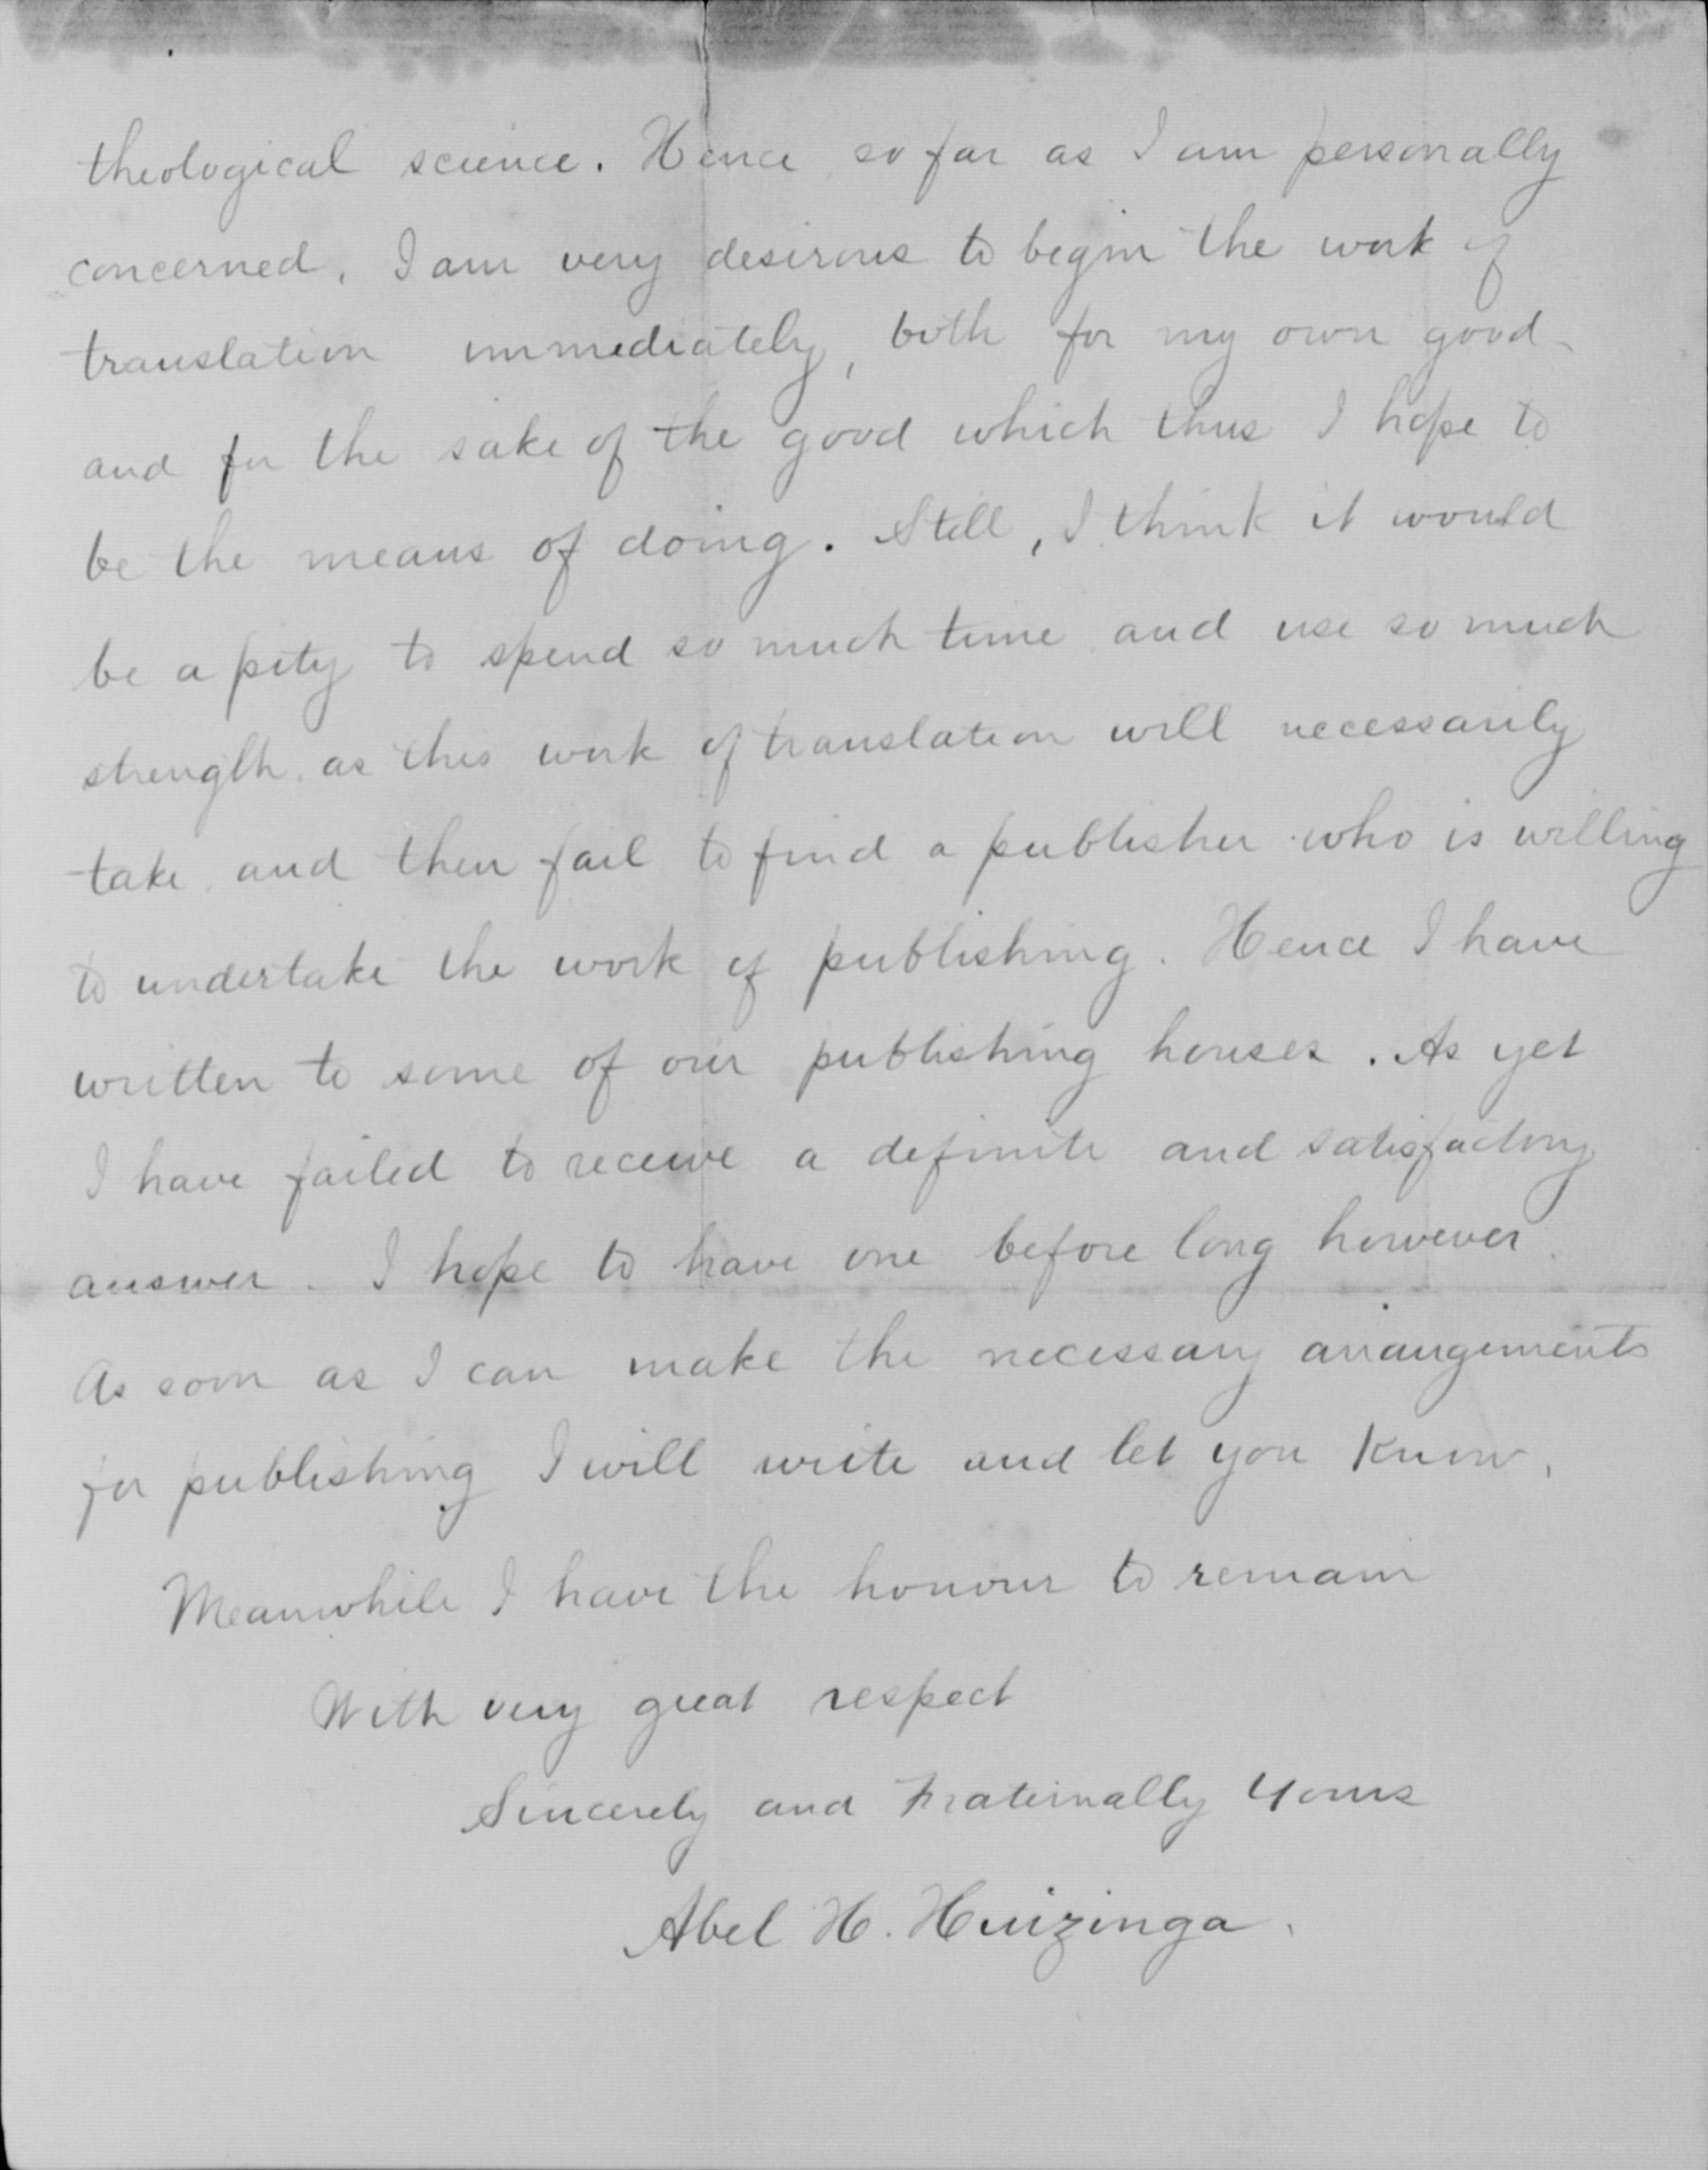 theological science. Hence so far as I am personally
concerned, I am very desirous to begin the work of
translation immediately, both for my own good
and for the sake of the good which thus I hope to
be the means of doing. Still, I think it would
be a pity to spend so much time and use so much
strength, as this work of translation will necessarily
take, and then fail to find a publisher who is willing
to undertake the work of publishing. Hence I have
written to some of our publishing houses. As yet
I have failed to receive a definite and satisfactory
answer. I hope to have one before long however.
As soon as I can make the necessary arrangements
for publishing I will write and let you know.
Meanwhile I have the honour to remain
With very great respect
Sincerely and Fraternally Yours
Abel H. Huizinga.